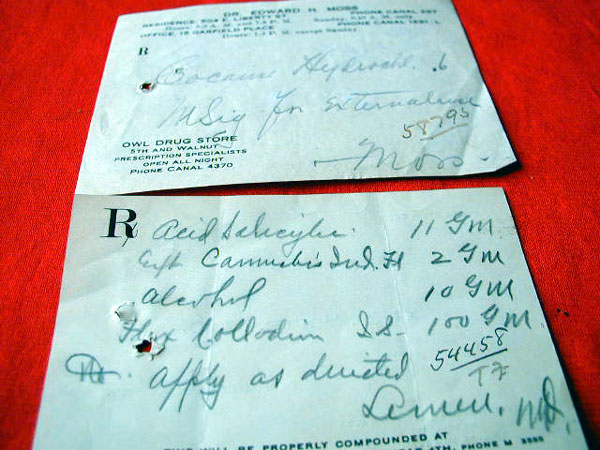 DR. EDWARD H. MOSS
RESIDENCE, 904 E. LIBERTY ST. PHONE CANAL 597
OFFICE, 19 GARFIELD PLACE PHONE CANAL 1891 L
Hours: except Sunday.
R
Cocaine Hydrochl. .6
M Sig for External use
58795
OWL DRUG STORE
5TH AND WALNUT
PRESCRIPTION SPECIALISTS
OPEN ALL NIGHT
PHONE CANAL 4370
Moss.
R Acid Salicylic. 11 Gm
Ext Cannabis Ind. Fl 2 Gm
Alcohol 10 Gm
Flex Collodion 100 Gm
apply as directed 54458
M.D.
WILL BE PROPERLY COMPOUNDED AT
4TH, PHONE M